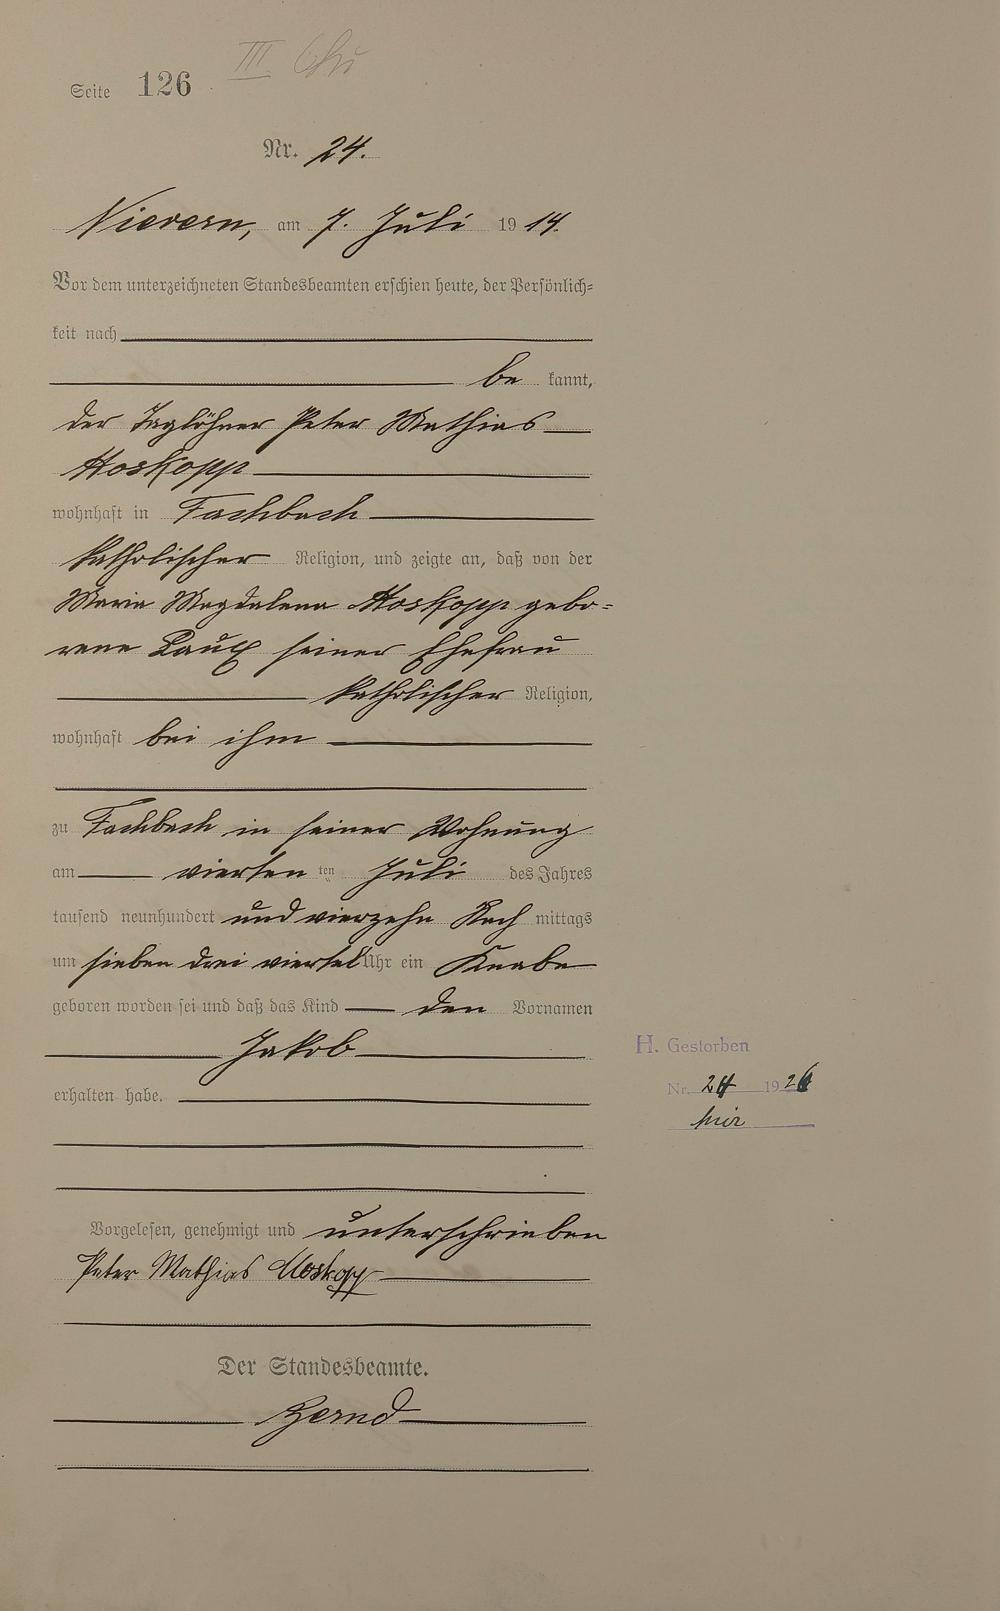 III
Seite 126
Nr. 24.
Nievern, am 7. Juli 1914.
Vor dem unterzeichneten Standesbeamten erschien heute, der Persönlich-
keit nach
be kannt,
der Taglöhner Peter Mathias
Moskopp
wohnhaft in Fachbach
katholischer Religion, und zeigte an, daß von der
Maria Magdalena Moskopp gebo-
rene Laux seiner Ehefrau
katholischer Religion,
wohnhaft bei ihm
zu Fachbach in seiner Wohnung
am vierten ten Juli des Jahres
tausend neunhundert und vierzehn Nach mittags
um sieben drei viertel Uhr ein Knabe
geboren worden sei und daß das Kind den Vornamen
Jakob
erhalten habe.
H. Gestorben
Nr. 24 1926
hier
Vorgelesen, genehmigt und unterschrieben
Peter Mathias Moskopp
Der Standesbeamte.